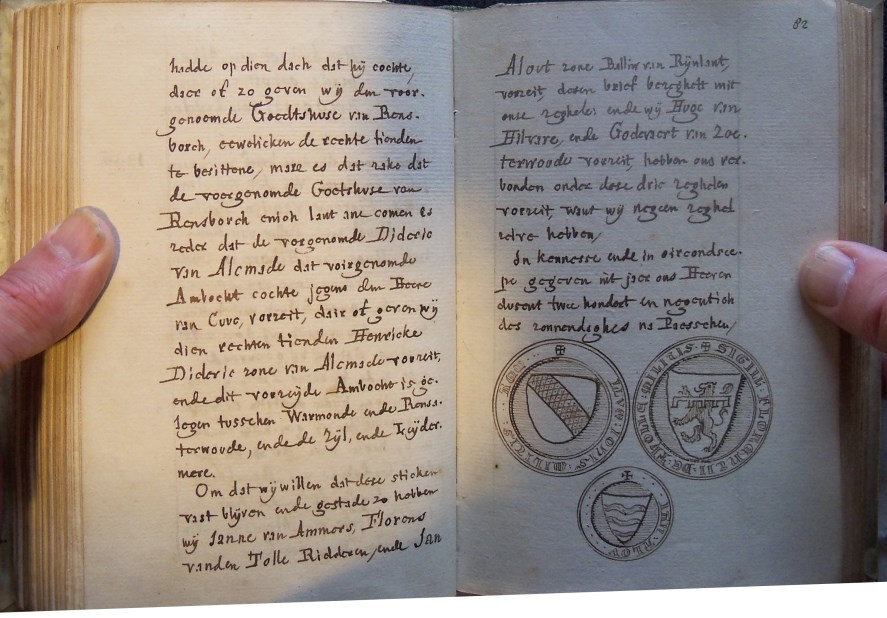 hadde op dien dach dat hij cochte,
daer of zo geven wij den voor-
genoemde Goedtshuse van Rens-
borch, eewelicken de rechte tienden
te besittene, mare es dat zake dat
de voorgenomde Goetshuse van
Rensborch enich lant ane comen es
zeder dat de vorgenomde Dideric
van Alemade dat voirgenomde
Ambocht cochte jegens den Heere
van Cuyc, vorzeit, dair of geven wij
dien rechten tienden Henricke
Dideric zone van Alemade vorzeit,
ende dit vorzeijde Ambocht is ge-
legen tusschen Warmonde ende Rensa-
terwoude, ende de Zijl, ende Leijder-
mere.
Om dat wij willen dat dese sticken
vast blijven ende gestade zo hebben
wij Janne van Ammers, Florens
vanden Tolle Ridderen, ende Jan
82
Alout zone Balliu van Rijnlant,
vorzeit, desen brief bezeghelt mit
onse zeghelen ende wij Huge van
Hilvare, ende Godevaert van Zoe-
terwoude vorzeit, hebben ons ver-
bonden onder dese drie zeghelen
vorzeit, want wij negeen zeghel
selve hebben,
In kennesse ende in oircondsce-
pe gegeven int jaer ons Heeren
dusent twee hondert en negentich
des sonnendaghes na Paesschen,
MILITIS
SIGILL FLORENTII DE MILITIS
IAN ALOV